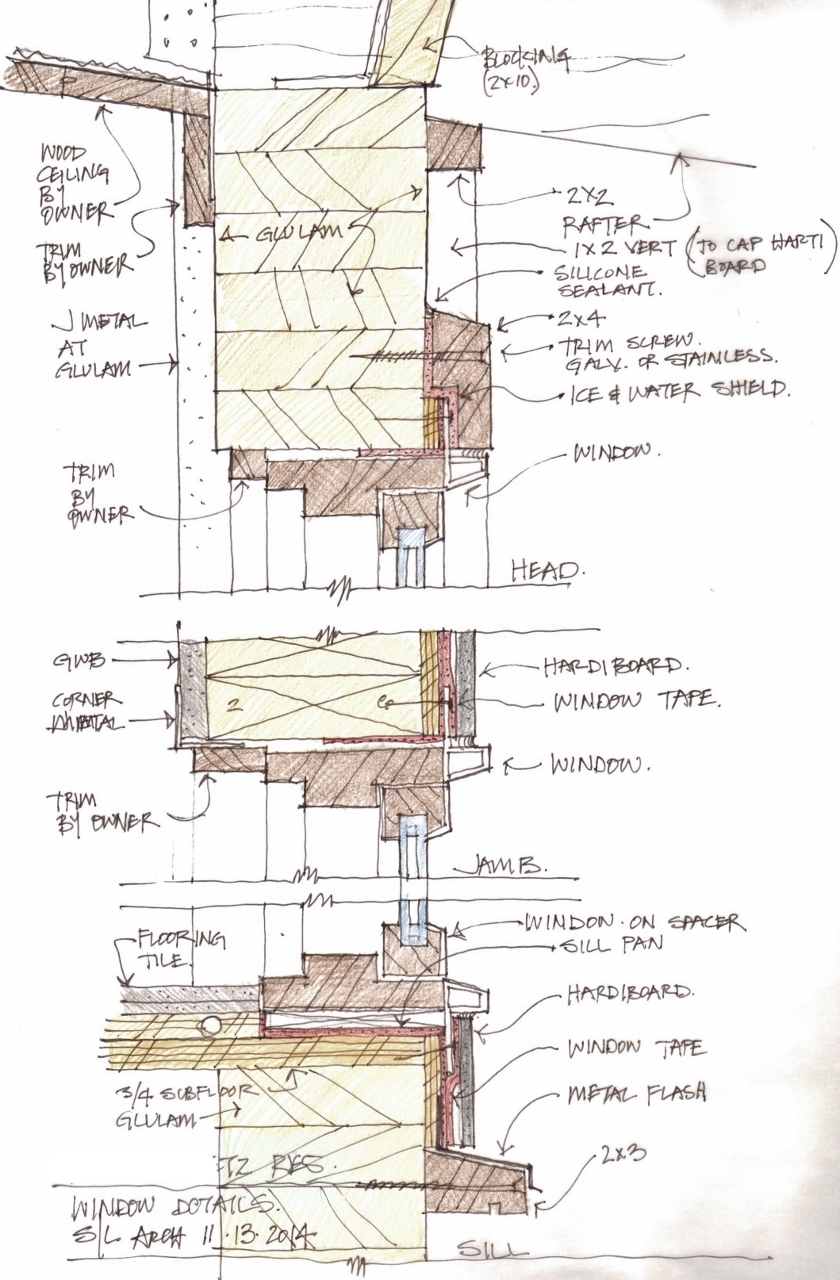 BLOCKING
(2X10)
WOOD
CEILING
BY
OWNER
TRIM
BY OWNER
J METAL
AT
GLULAM
GLULAM
2X2
RAFTER
1X2 VERT (TO CAP HARTI
BOARD)
SILICONE
SEALANT.
2X4
TRIM SCREW.
GALV. OR STAINLESS.
ICE & WATER SHIELD.
WINDOW.
TRIM
BY
OWNER
HEAD.
GWB
CORNER
METAL
2 6
HARDIBOARD.
WINDOW TAPE.
WINDOW.
TRIM
BY OWNER
JAMB.
FLOORING
TILE.
WINDOW ON SPACER
SILL PAN
HARDIBOARD.
WINDOW TAPE
METAL FLASH
2X3
3/4 SUBFLOOR
GLULAM
TZ RES.
WINDOW DETAILS.
S/L ARCH 11.13.2014
SILL